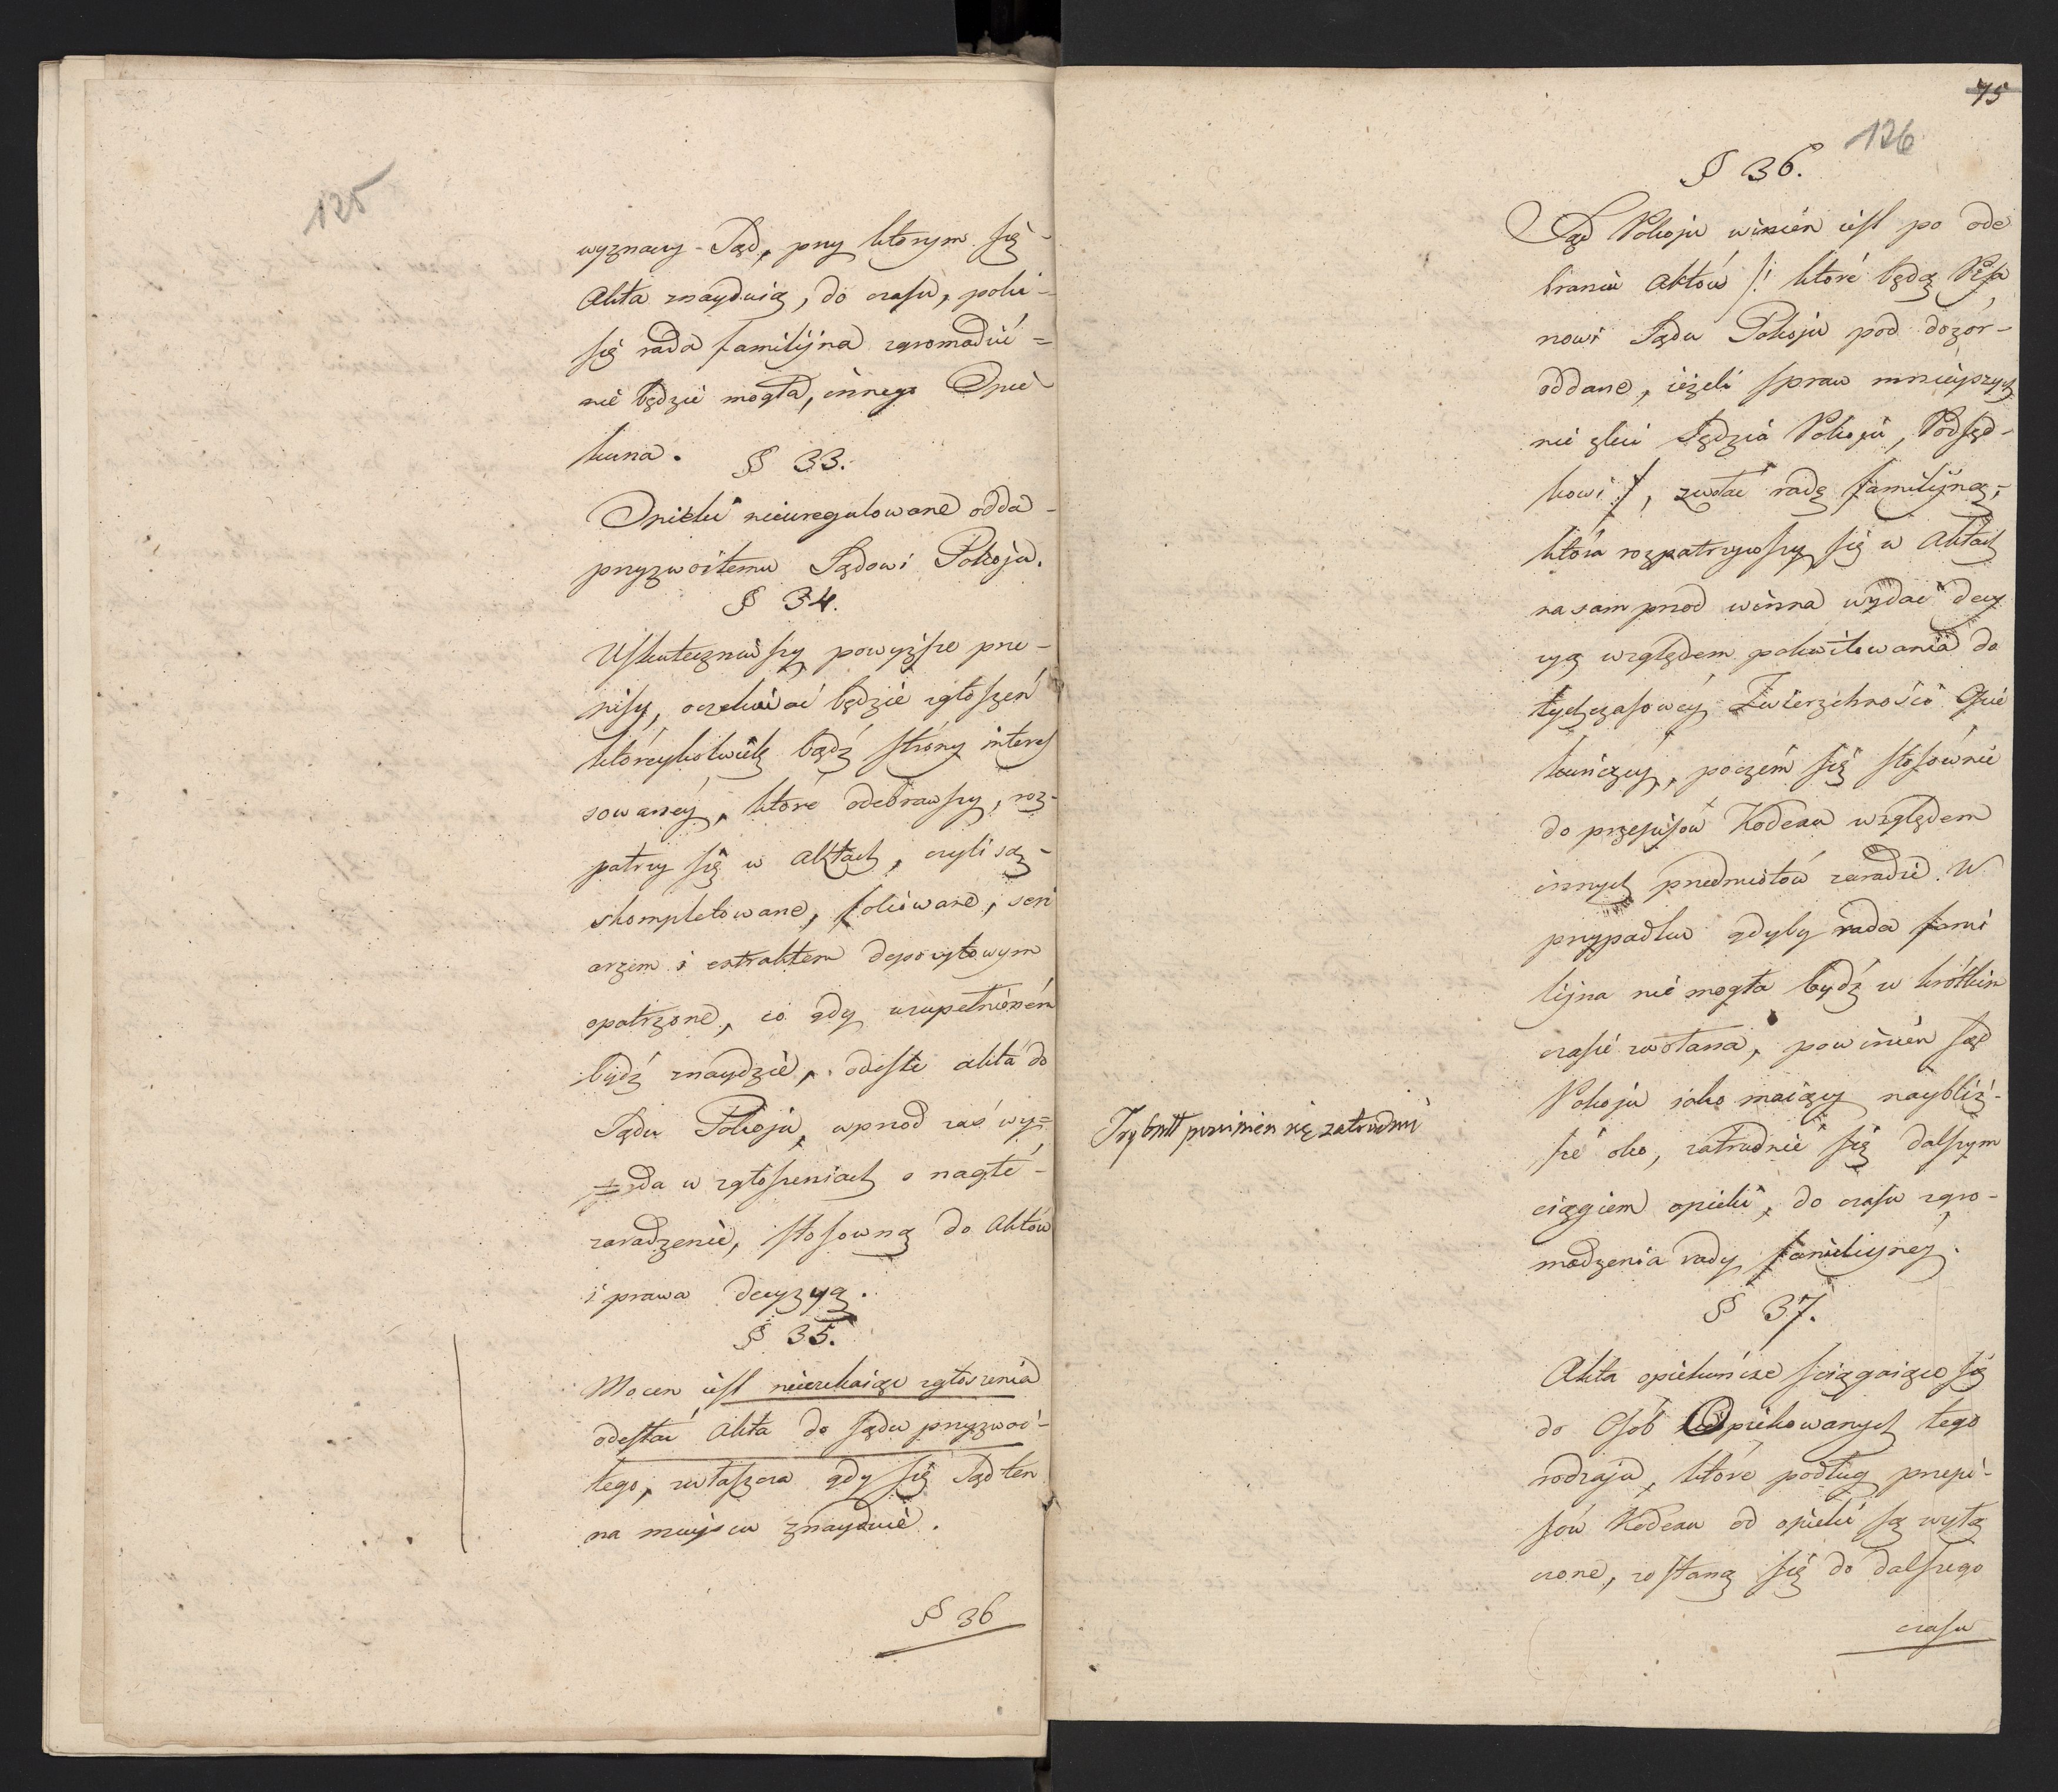 125
wyznaczy Sąd, przy którym się
Akta znayduią, do czasu, poki
się rada familijna zgromadzić
nie będzie mogła, innego Opie
kuna.
§ 33.
Opieki nieuregulowane odda
przyzwoitemu Sądowi Pokoju.
§ 34.
Uskuteczniwszy powyższe prze-
pisy, oczekiwać będzie zgłoszeń
któreykolwiek bądź strony interes
sowaney, które odebrawszy, roz-
patrzy się w Aktach, czyli są
skompletowane, foliowane, seri
arzem i extraktem depozytowym
opatrzone, co gdy uzupełnioném
bydź znaydzie, odeśle akta do
Sądu Pokoju, wprzod zaś wy=
da w zgłoszeniach o nagłé
zaradzenie, stosowną do Aktów
i prawa decyzyą.
§ 35.
Mocen iest nieczekaiąc zgłoszenia
odesłać Akta do sądu przyzwoi-
tego, zwłaszcza gdy się Sąd ten
na mieyscu znayduie.
§ 36
75
126
§ 36.
Sąd Pokoju winien iest po ode
braniu Aktów /: które będą Pisa
rzowi Sądu Pokoju pod dozór
oddane, ieżeli spraw mnieyszych
nie zleci Sędzia Pokoju, Podsęd-
kowi :/, zwołać radę familijną,
która rozpatrzywszy się w Aktach
na sam przod winna wydać decy
zyą względem pokwitowania do
tychczasowey Zwierzchności Opie
kuńczey, poczém się stosównie
do przepisów Kodexu względem
innych przedmiotów zaradzi. W
przypadku gdyby rada fami
lijna nie mogła bydź w krótkim
czasie zwołana, powinien sąd
Pokoju iako maiący naybliż-
sze oko, zatrudnić się dalszym
ciągiem opieki, do czasu zgro-
madzenia rady familiyney.
Trybnłł powinien się zatrudnić
§ 37.
Akta opiekuńcze sciągaiące się
do Osób Opiekowanych tego
rodzaju, które podług przepi-
sów Kodexu od opieki są wyłą
czone, zostaną się do dalszego
czasu